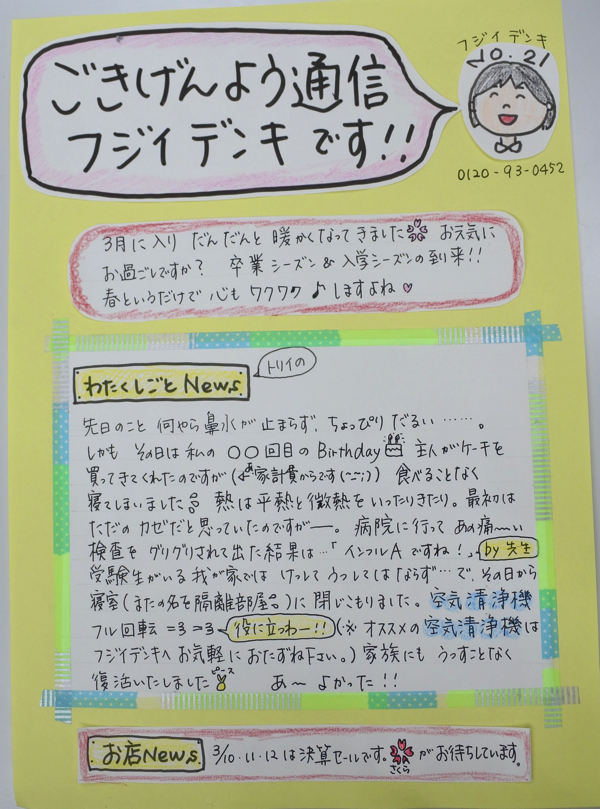 ごきげんよう通信
フジイデンキです!!
フジイデンキ
NO.21
0120-93-0452
3月に入り だんだんと 暖かくなってきました お元気に
お過ごしですか? 卒業シーズン&入学シーズンの到来!!
春というだけで 心も ワクワク♪しますよね♥
わたくしごとNews
トリイの
先日のこと 何やら鼻水が止まらず、ちょっぴり だるい……。
しかも その日は 私の 〇〇回目の Birthday 主人がケーキを
買ってきてくれたのですが(←あ家計費からです(^-^;)) 食べることなく
寝てしまいました 熱は平熱と微熱をいったりきたり。最初は
ただの カゼだと思っていたのですがー。病院に行って あの痛〜い
検査を グリグリされて出た結果は…「インフルAですね!」by 先生
受験生がいる 我が家では けっして うつしてはならず…で、その日から
寝室(またの名を隔離部屋。)に閉じこもりました。空気清浄機
フル回転 =3 =3 役に立つわー!! (※オススメの空気清浄機は
フジイデンキへ お気軽に おたずね下さい。) 家族にも うつすことなく
復活いたしました ピース あ〜 よかった!!
お店News 3/10.11.12は決算セールです。さくらがお待ちしています。